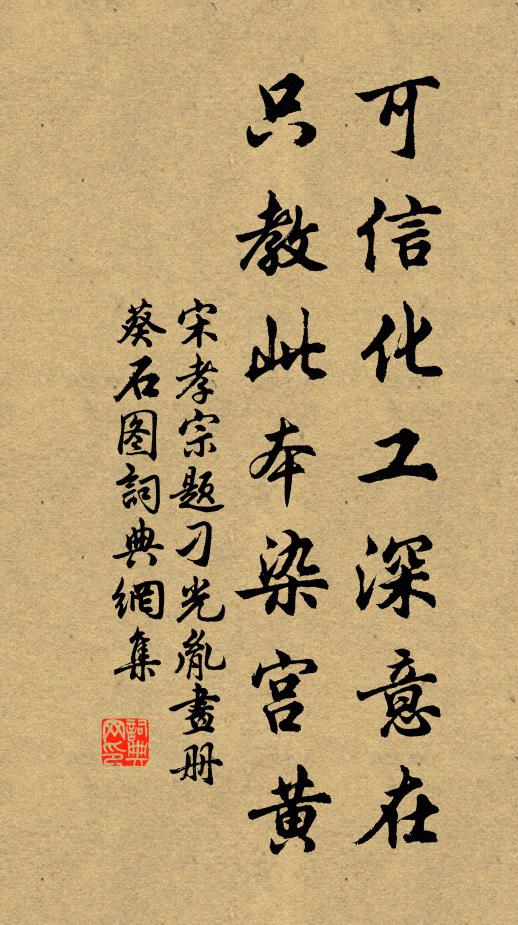 可信化工深意在
只教此本染宫黄
宋孝宗题刁光胤畫册
葵石图詞典網集
詞典网印